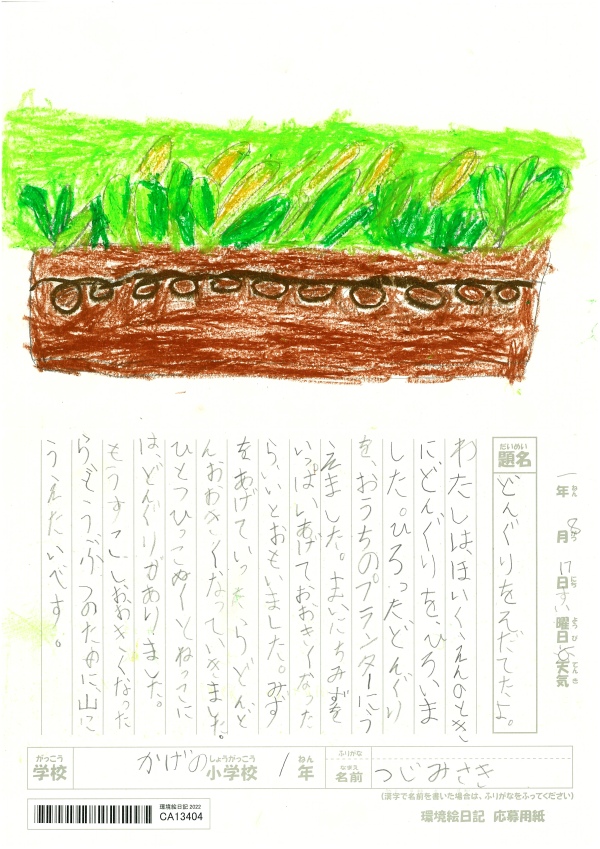 一年 8月 17日 すい曜日 天気
ねん がつ にち ようび てんき
だいめい
題名
どんぐりをそだてたよ。
わたしは、ほいくえんのとき
にどんぐりを、ひろいま
した。ひろったどんぐり
を、おうちのプランターにう
えました。まいにちみずを
いっぱいあげておおきくなった
ら、いいとおもいました。みず
をあげていったらどんど
んおおきくなっていきました。
ひとつひっこぬくとねっこに
は、どんぐりがありました。
もうすこしおおきくなった
らどうぶつのために、山に
うえたいです。
がっこう
学校
かげの小学校
しょうがっこう
1年
ねん
ふりがな
なまえ
名前
つじみさき
(漢字で名前を書いた場合は、ふりがなをふってください)
環境絵日記 2022
CA13404
環境絵日記 応募用紙